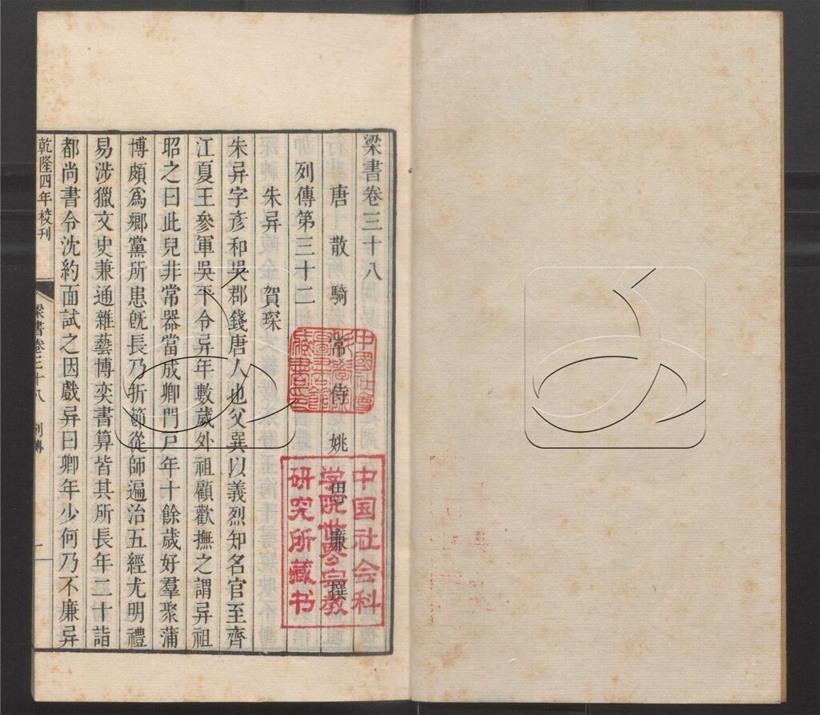 梁書卷三十八
唐散騎常侍姚思廉撰
列傳第三十二
朱异 賀琛
朱异字彥和吳郡錢唐人也父巽以義烈知名官至齊
江夏王參軍吳平令异年數歲外祖顧歡撫之謂异祖
昭之曰此兒非常器當成卿門戸年十餘歲好羣聚蒲
博頗爲鄉黨所患旣長乃折節從師遍治五經尤明禮
易涉獵文史兼通雜藝博奕書算皆其所長年二十詣
都尚書令沈約面試之因戲异曰卿年少何乃不廉异
乾隆四年校刊
梁書卷三十八 列傳
一
中国社会科
学院世界宗教
研究所藏书